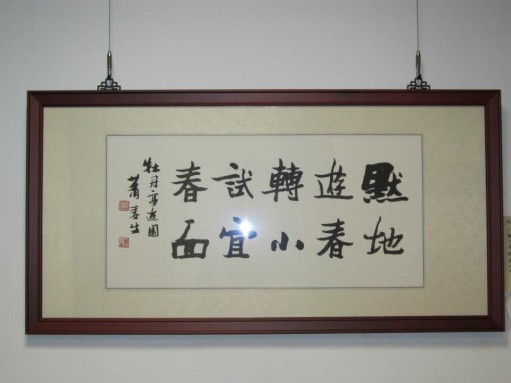 默地
遊春
轉小
試宜
春面
牡丹亭遊園
蕭春生